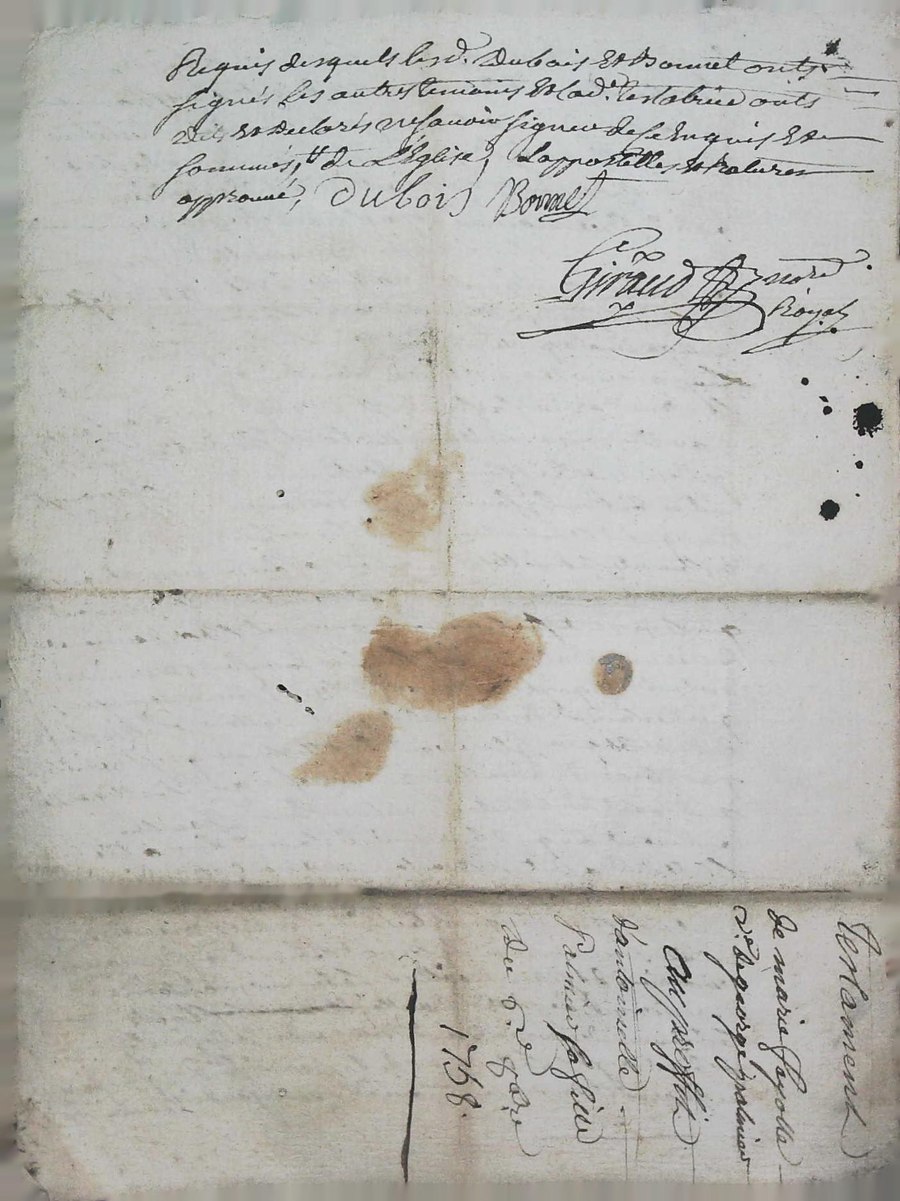 Requis desquels lesd. Dubois Et Bonnet onts
signés les autres temoins Et lad.e testatrice onts
dits Et Declarés ne savoir signer de ce Enquis Et
sommés, tt de L'Eglise, L'appostelles Et Ratures
approuvé, Dubois Bonnet
Giraud nore
Royal
Testament
De marie fayolle
v.e de george palmier
Au proffit
d'antoinette
Palmier sa fille
Du 6 d. 8bre
1758.